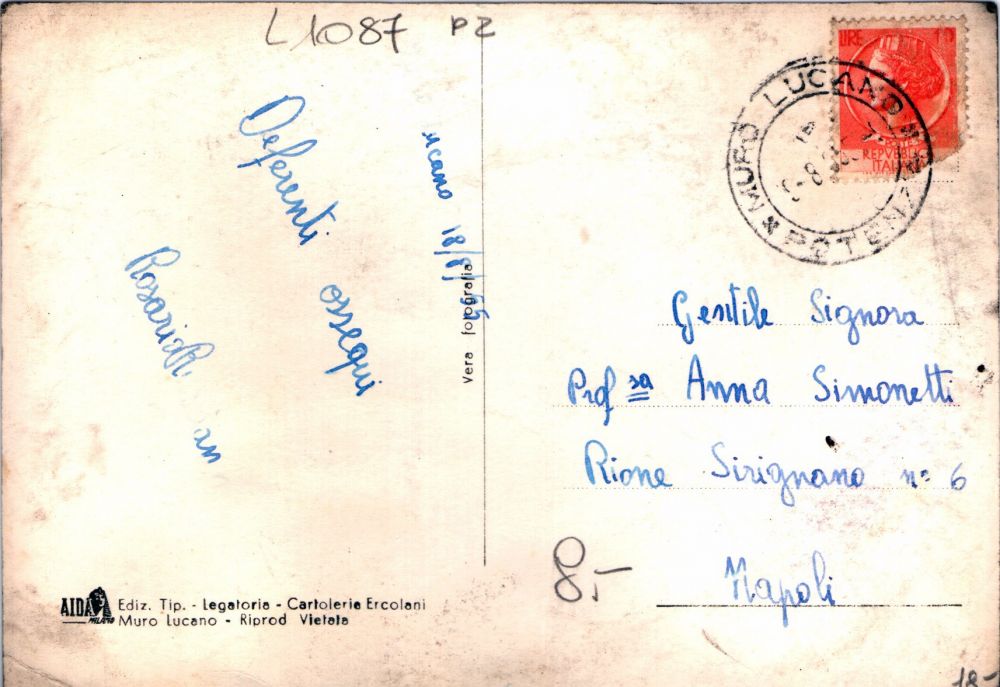 L1087 PZ
LIRE 10
REPUBBLICA
ITALIANA
MURO LUCANO
POTENZA
Lucano 18/8/55
Deferenti
ossequi
Vera fotografia
Gentile Signora
Prof.sa Anna Simonetti
Rione Sirignano n= 6
Napoli
8,-
AIDA
MILANO
Ediz. Tip. - Legatoria - Cartoleria Ercolani
Muro Lucano - Riprod Vietata